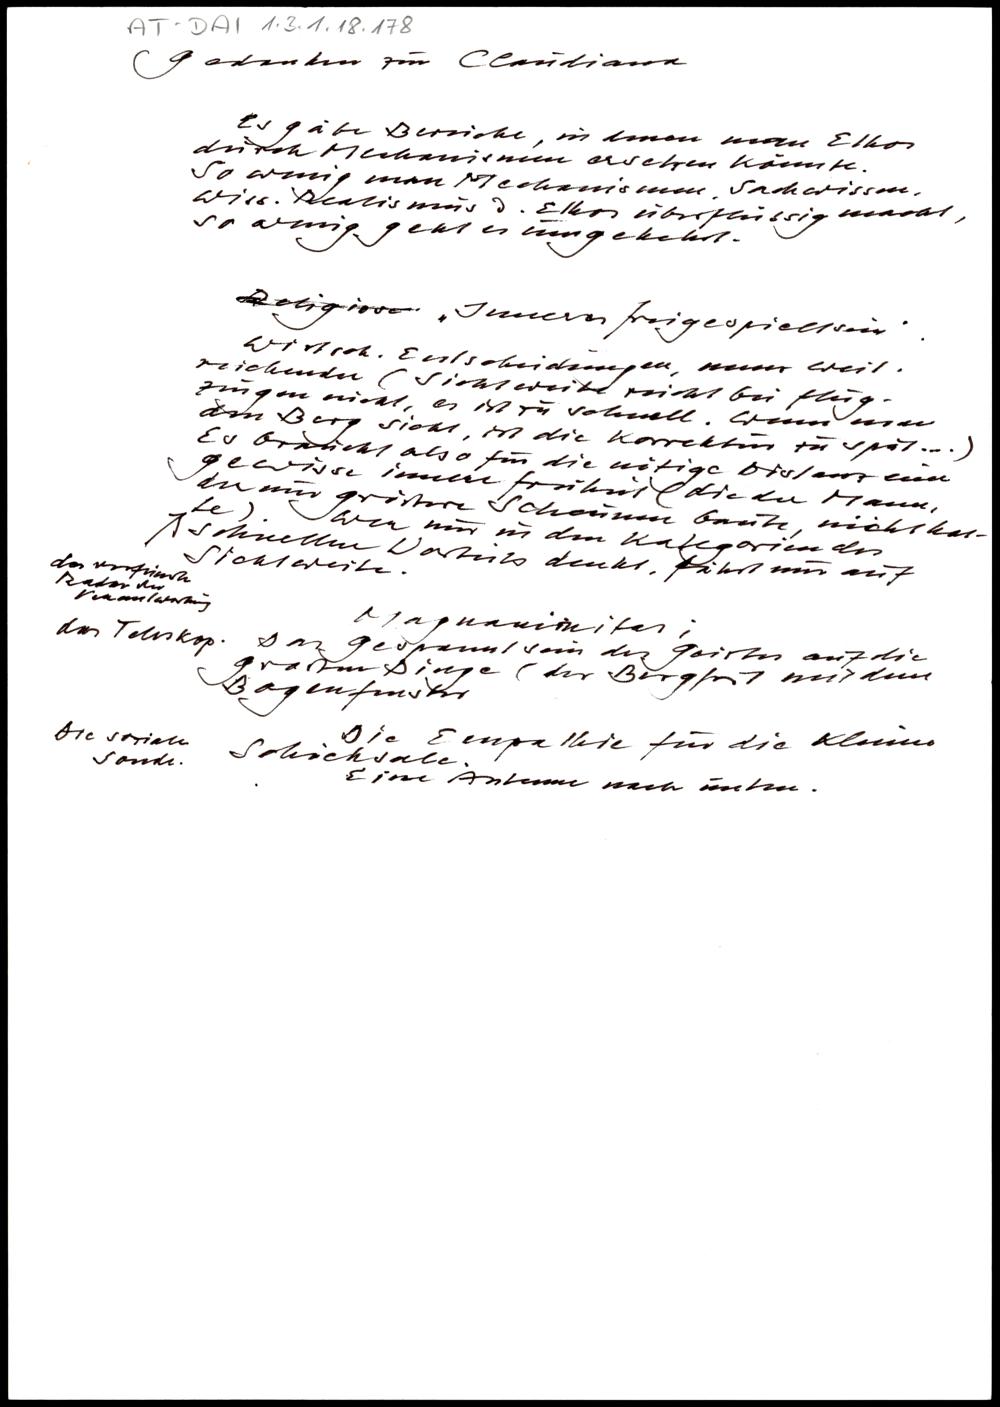 AT-DAI 1.3.1.18.178
Gedanken zur Claudiana
Es gäbe Bereiche, in denen man Ethos
durch Mechanismen ersetzen könnte.
So wenig man Mechanismen, Sachwissen,
wiss. Realismus d. Ethos überflüssig macht,
so wenig geht es umgekehrt.
Religiose „Inneres freigespieltsein".
Wirtsch. Entscheidungen, nur weit-
reichender (Sichtweite reicht bei Flug-
zeugen nicht, es ist zu schnell. Wenn man
den Berg sieht, ist die Korrektur zu spät...)
Es braucht also für die nötige Distanz eine
gewisse innere Freiheit (die der Mann,
der nur größere Scheunen baute, nicht hat-
te) Wer nur in den Kategorien des
schnellen Vorteils denkt, fährt nur auf
Sichtweite.
das
Radar der
Verantwortung
Magnanimitas;
das Teleskop.
Das Gespanntsein des Geistes auf die
großen Dinge (der Bergfrit mit dem
Bogenfenster
Die soziale
Sonde.
Die Empathie für die kleinen
Schicksale.
Eine Antenne nach unten.